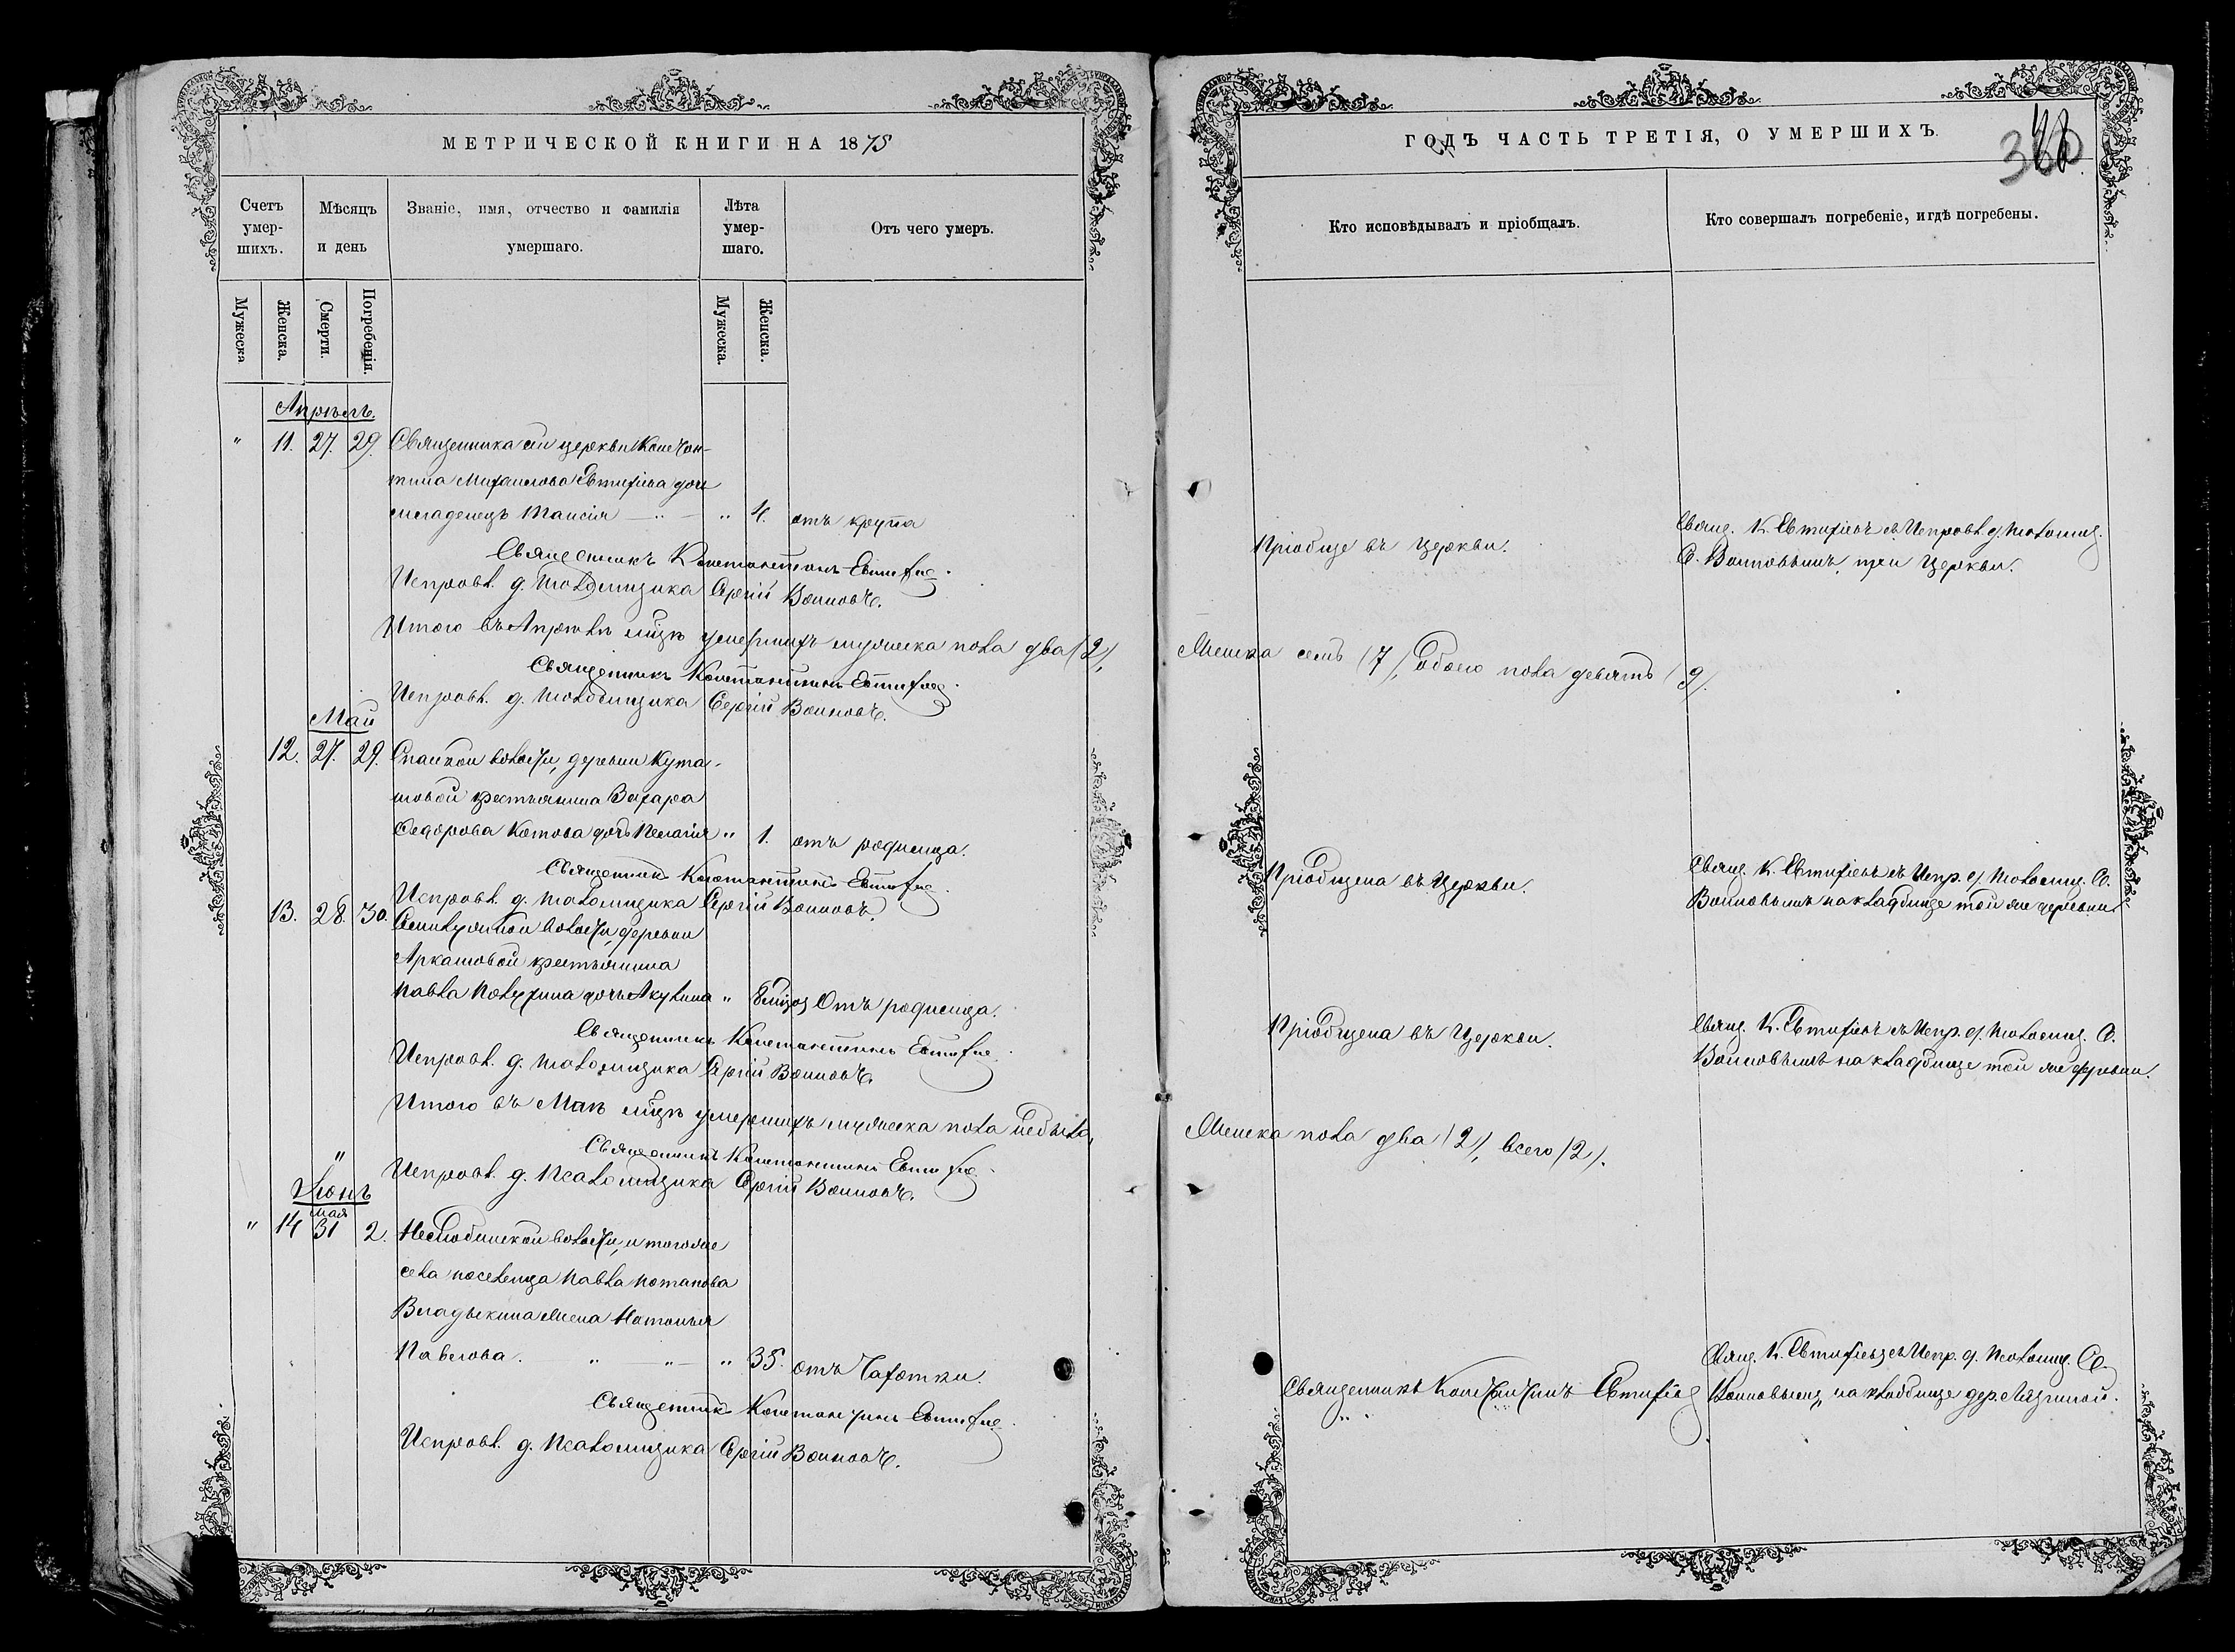 МЕТРИЧЕСКОЙ КНИГИ НА 1878
Счетъ умер-шихъ.
Мѣсяцъ и день
Званіе, имя, отчество и фамилія умершаго.
Лѣта умер-шаго.
Отъ чего умеръ.
Мужеска
Женска.
Смерти.
Погребенія.
Мужеска.
Женска.
Апрѣль.
" 11. 27. 29. Священника сей церкви Констан-
тина Михаилова Евтифіева дочь
младенецъ Таисія " 4. отъ крупа
Священникъ Константинъ Евтифіе
Исправл. д. псаломщика Сергій Воиновъ.
Итого въ Апрѣлѣ мѣцѣ умершихъ мужеска пола два (2),
Священникъ Константинъ Евтифіе
Исправл. д. псаломщика Сергій Воиновъ.
Май
12. 27. 29. Спасской волости, деревни Кута-
шовой крестьянина Захара
Сидорова Котова дочь Пелагія " 1. отъ родимца.
Священник Константинъ Евтифіе
Исправл. д. псаломщика Сергій Воиновъ.
13. 28. 30. волости, деревни
Аркашовой крестьянина
Павла дочь Акулина " 8 отъ родимца.
Священникъ Константинъ Евтифіе
Исправл. д. псаломщика Сергій Воиновъ.
Итого въ Маѣ мѣцѣ умершихъ мужеска пола небыло,
Священникъ Константинъ Евтифіе
Исправл. д. псаломщика Сергій Воиновъ.
"
Іюнь
мая
" 14 31 2. волости, и тогоже
села поселенца Павла Потапова
Владыкина жена Наталья
Павлова. " " " 35. отъ чахотки.
Священник Константинъ Евтифіе
Исправл. д. псаломщика Сергій Воиновъ.
ГОДЪ ЧАСТЬ ТРЕТІЯ, О УМЕРШИХЪ.
Кто исповѣдывалъ и пріобщалъ.
Кто совершалъ погребеніе, и гдѣ погребены.
въ Церкви.
Свящ. К. Евтифіевъ съ Исправл. д. псаломщ.
С. Воиновымъ, при Церкви.
Женска семь (7), обоего пола девять (9).
Пріобщена въ Церкви.
Свящ. К. Евтифіевъ съ Испр. д. псаломщ. С.
Воиновымъ на кладбище той же деревни.
Пріобщена въ Церкви.
Свящ. К. Евтифіевъ съ Испр. д. псаломщ. С.
Воиновымъ на кладбище той же деревни.
Женска пола два (2), всего (2).
Священникъ Константинъ Евтифіев
" "
Свящ. К. Евтифіевъ съ Испр. д. псаломщ. С.
Воиновымъ, на кладбище дер.